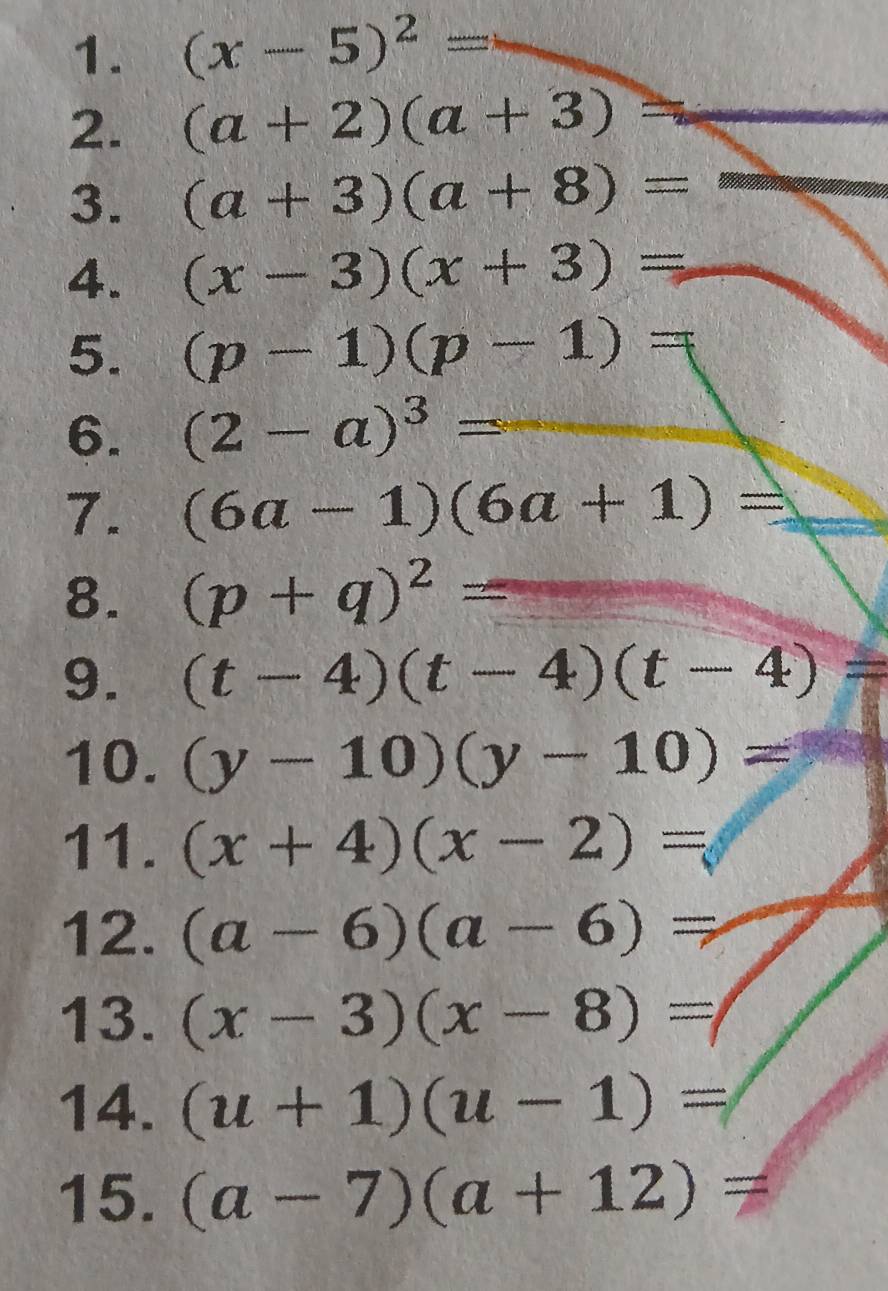 1. (x − 5)² =
2. (a + 2)(a + 3) =
3. (a + 3)(a + 8) =
4. (x − 3)(x + 3) =
5. (p − 1)(p − 1) =
6. (2 − a)³ =
7. (6a − 1)(6a + 1) =
8. (p + q)² =
9. (t − 4)(t − 4)(t − 4) =
10. (y − 10)(y − 10) =
11. (x + 4)(x − 2) =
12. (a − 6)(a − 6) =
13. (x − 3)(x − 8) =
14. (u + 1)(u − 1) =
15. (a − 7)(a + 12) =